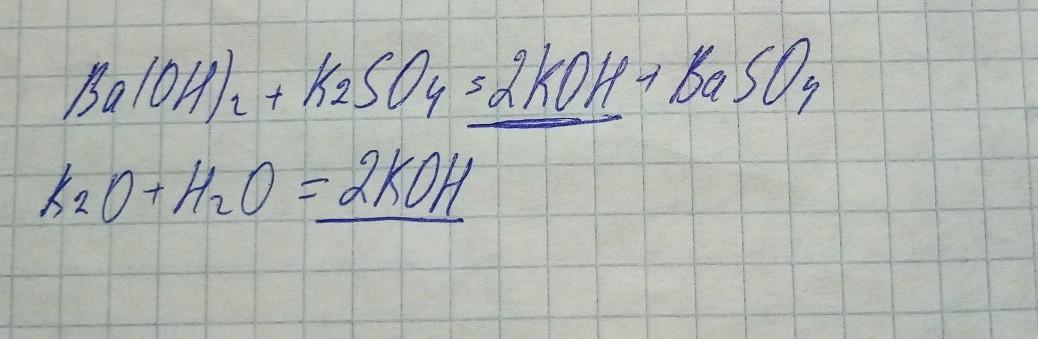 Ba(OH)₂ + K₂SO₄ = 2KOH + BaSO₄
K₂O + H₂O = 2KOH